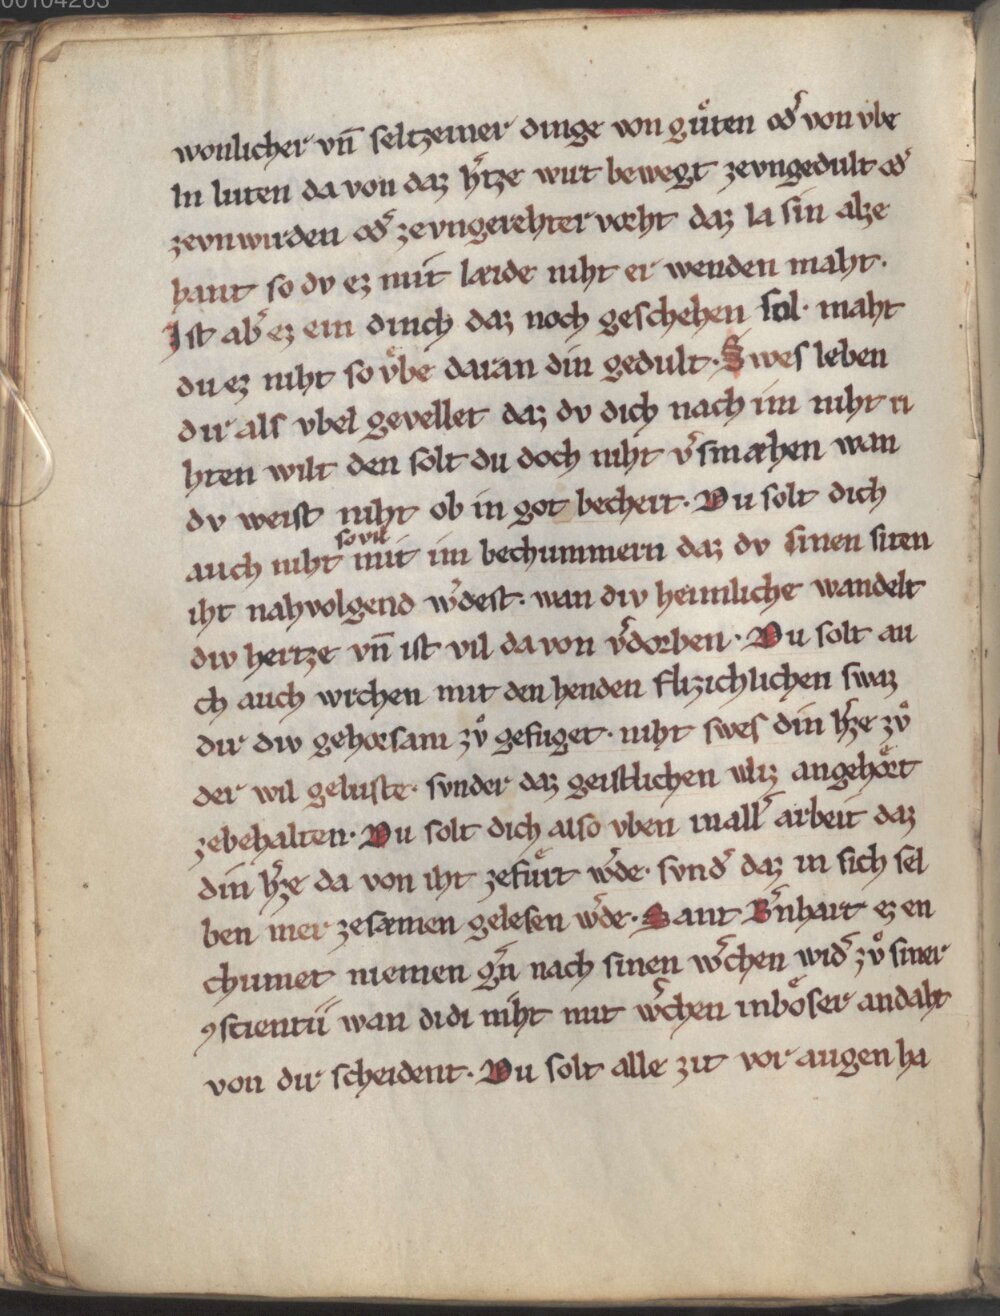 00104263
wonlicher vn̄ seltzeiner dinge von gůten od͛ von vbe
ln luten da von daz h͛tze wirt bewegt zevngedult od͛
zevnwirden od͛ zevngerehter vorht daz la sin alze
hant so dv ez mit laeide niht er wenden maht.
Ist ab͛ ez ein dinch daz noch geschehen sol. maht
du ez niht so v̊be daran din gedult. Swes leben
dir als vbel gevellet daz dv dich nach im niht ri
hten wilt den solt du doch niht v͛smæhen wan
dv weist niht ob in got bechert. Du solt dich
so vil
auch niht mit im bechummern daz dv sinen siten
iht nahvolgend w͛dest. wan div heimliche wandelt
div hertze vn̄ ist vil da von v͛dorben. Du solt au
ch auch wrchen mit den henden flizichlichen swaz
dir div gehorsam zv̊ gefuget. niht swes din h͛ze zv̊
der wil geluste. svnder daz geistlichen vliz angehoͤrt
zebehalten. Du solt dich also vben in all͛ arbeit daz
din h͛ze da von iht zefuͤrt w͛de. svnd͛ daz in sich sel
ben mer zesæmen gelesen w͛de. Sant B͛nhart ez en
chumet niemen g͛n nach sinen w͛chen wid͛ zv̊ siner
ꝯscientii wan didi niht mit w͛chen in boͤser andaht
von dir scheident. Du solt alle zit vor augen ha